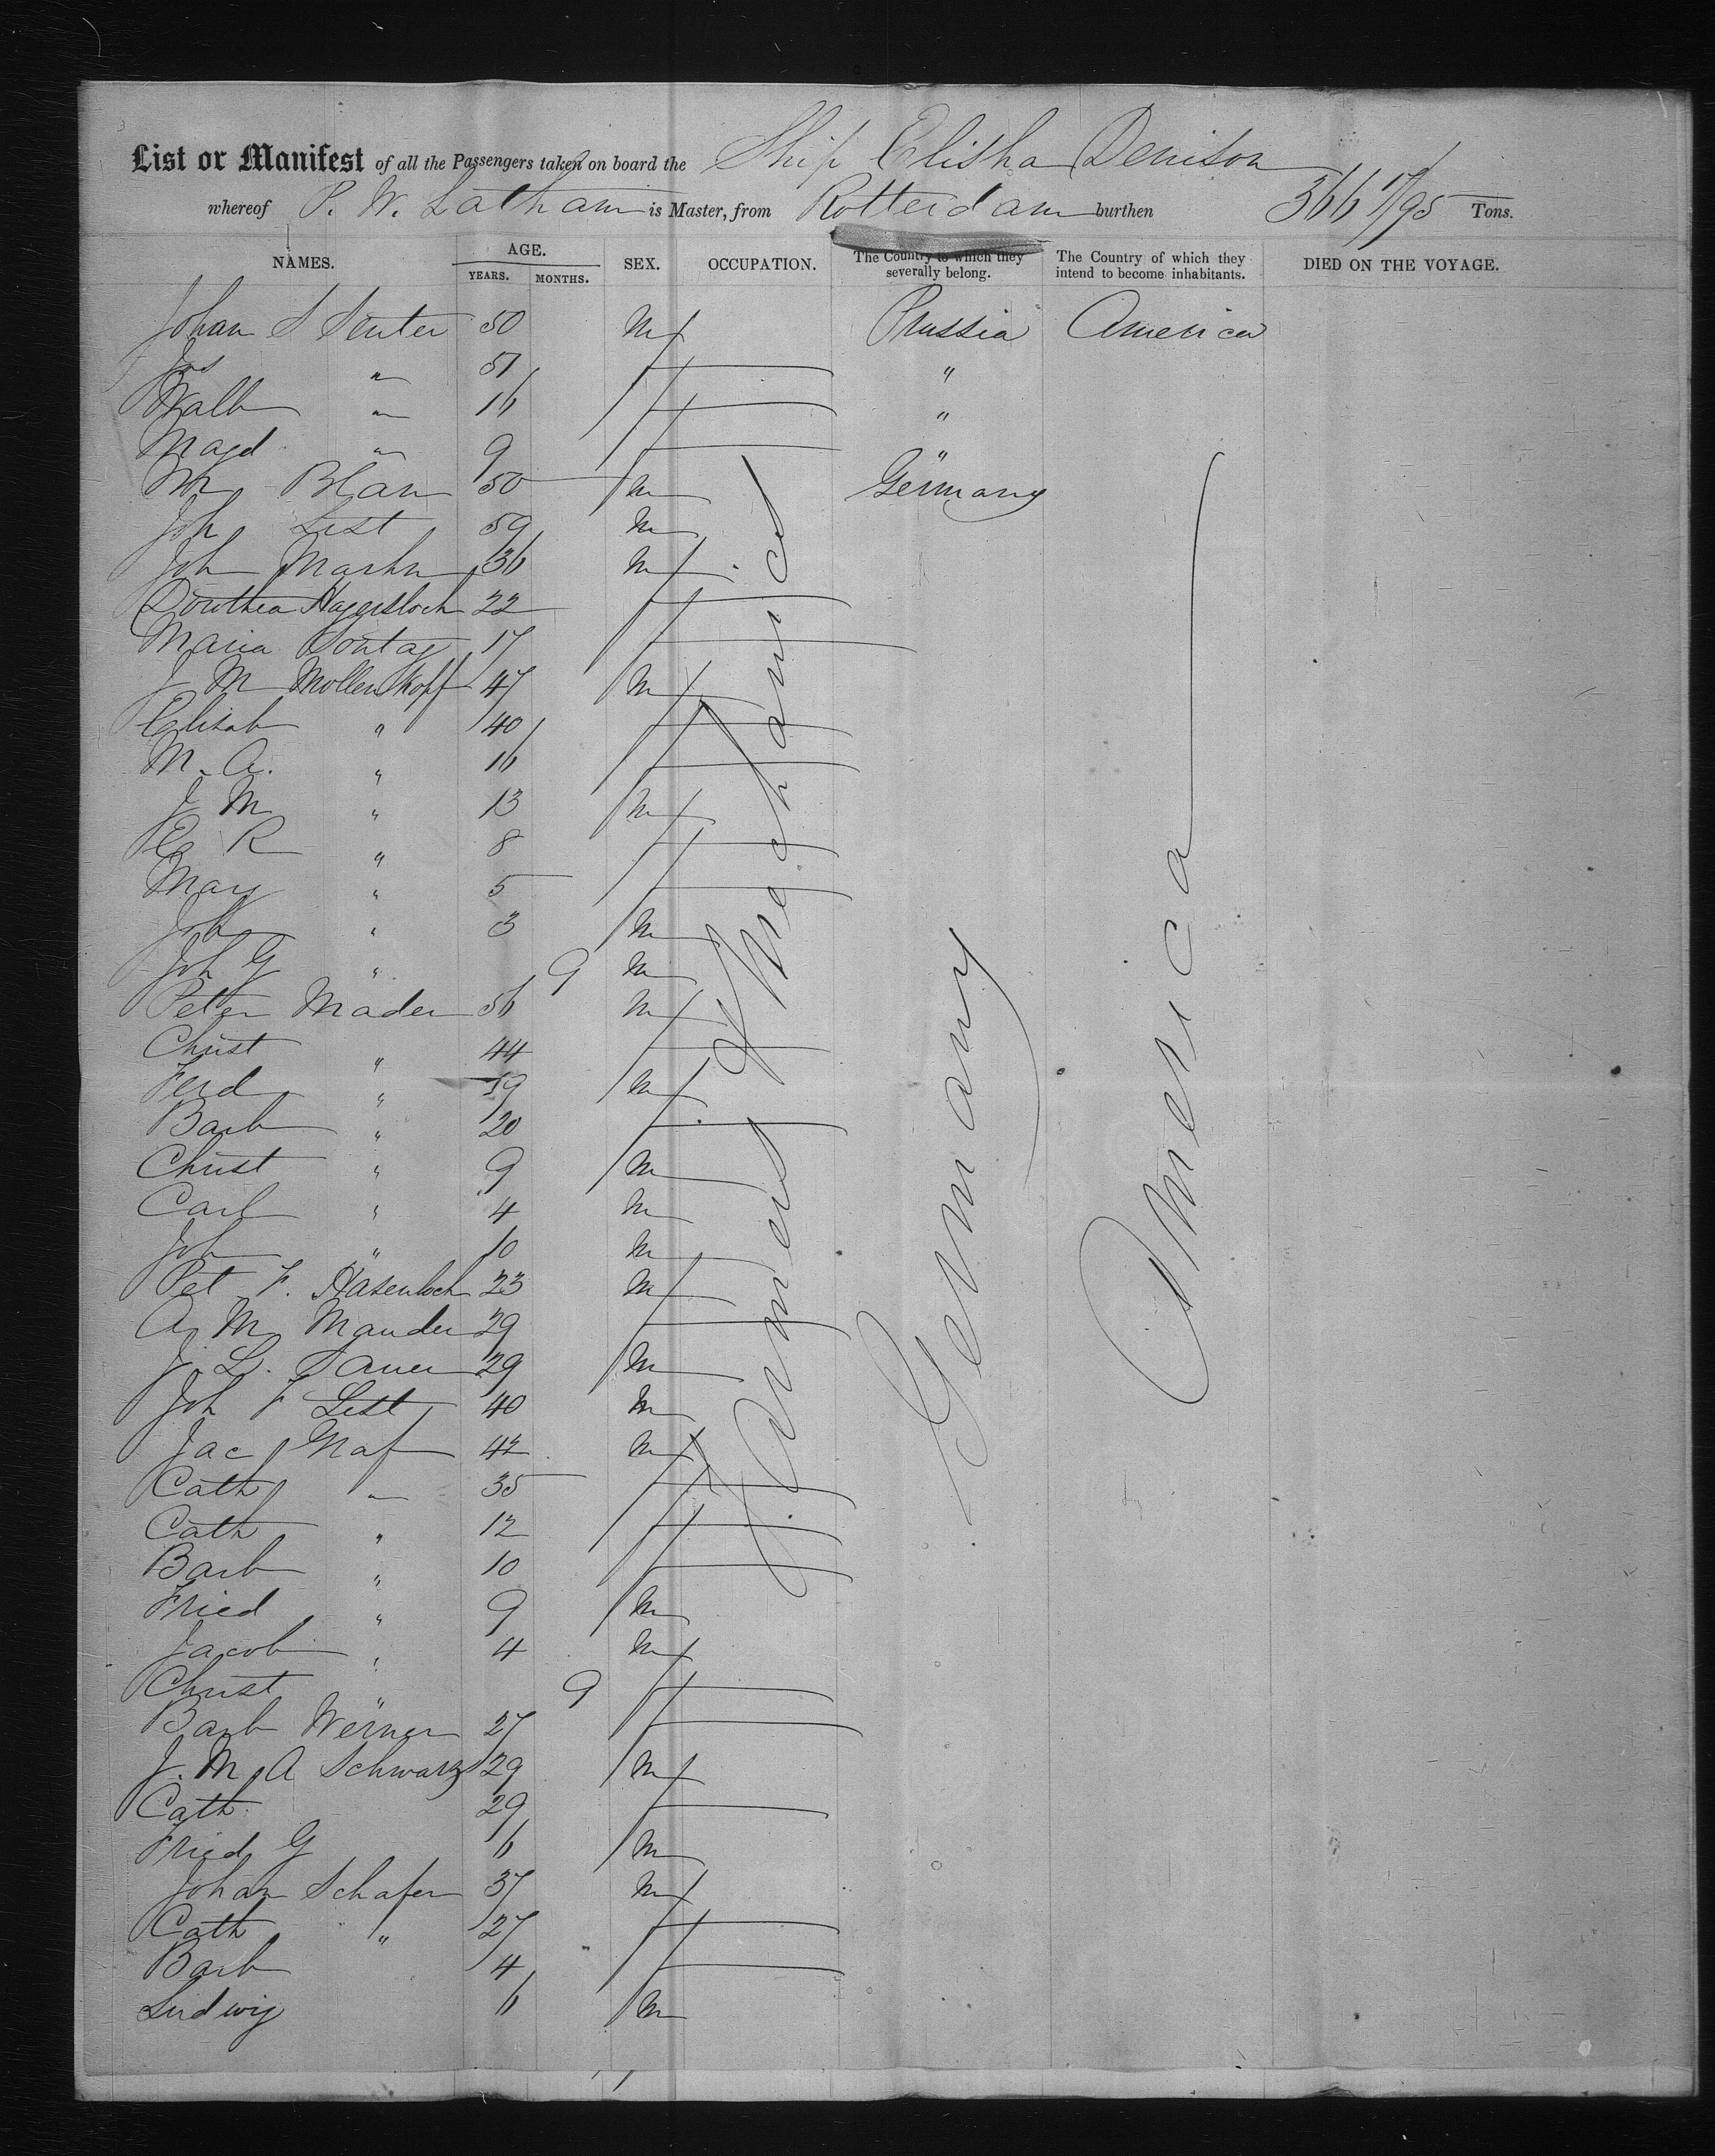 List or Manifest of all the Passengers taken on board the Ship Elisha Denison
whereof P. W. Latham is Master, from Rotterdam burthen 366 17/95 Tons.
NAMES. AGE. YEARS. MONTHS. SEX. OCCUPATION. The Country to which they severally belong. The Country of which they intend to become inhabitants. DIED ON THE VOYAGE.
Johan S Senter 50 M Prussia America
Jos " 51 f "
Walb " 16 f "
Magd " 9 f "
M Blan 50 M Germany
Joh List 59 M
Joh Martin 36 M
Dorothea Hagersloch 22 f
Maria Sontag 17 f
J M Mollenkopf 47 M
Elisab " 40 f
M. A. " 16 f
J M " 13 M
E R " 8 f
Mary " 5 f
Joh " 3 M
Joh G " 9 M
Peter Mader 56 M
Christ " 44 f
Ferd " 19 M
Barb " 20 f
Christ " 9 M
Carl " 4 M
Joh " 10 M
Pet F. Hasenloch 23 M
A M Mander 29 f
J. L. Sauer 29 M
Joh F List 40 M
Jac Graf 42 M
Cath " 35 f
Cath " 12 f
Barb " 10 f
Fried " 9 M
Jacob " 4 M
Christ 9 f
Barb Werner 27 f
J. M. A Schwarz 29 M
Cath 29 f
Fried G 6 M
Johan Schafer 37 M
Cath " 27 f
Barb 4 f
Ludwig 6 M
Farmers & Mechanics
Germany
America